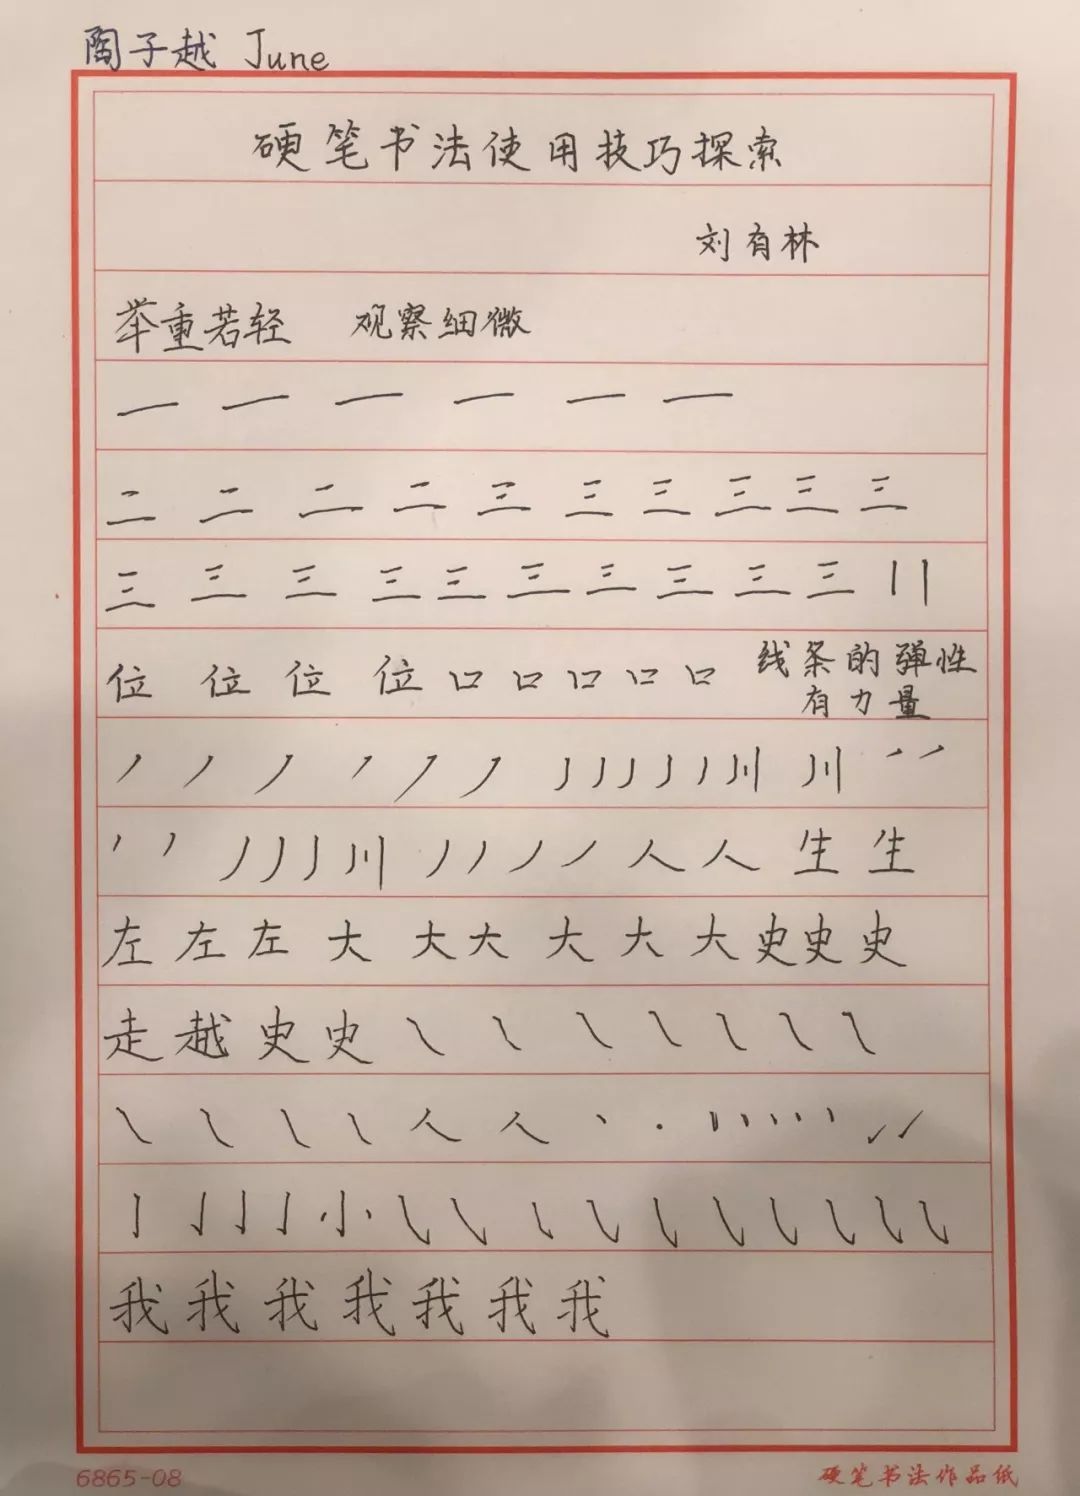 陶子越 June
硬笔书法使用技巧探索
刘有林
举重若轻 观察细微
一 一 一 一 一 一
二 二 二 二 三 三 三 三 三 三
三 三 三 三 三 三 三 三 三 三 丨丨
位 位 位 位 口 口 口 口 口 线条的弹性
有力量
丿 丿 丿 丿 丿 丿 丿丿丿丿丿川 川 丿丿
丿丿 丿丿丿 川 丿丿丿丿 人 人 生 生
左 左 左 大 大 大 大 大 大 史 史 史
走 越 史 史 ㇏ ㇏ ㇏ ㇏ ㇏ ㇏ ㇏
㇏ ㇏ ㇏ ㇏ 人 人 丶 丶
亅 亅 亅 亅 小 ㇂ ㇂ ㇂ ㇂ ㇂ ㇂ ㇂ ㇂ ㇂ ㇂
我 我 我 我 我 我 我
6865-08 硬笔书法作品纸